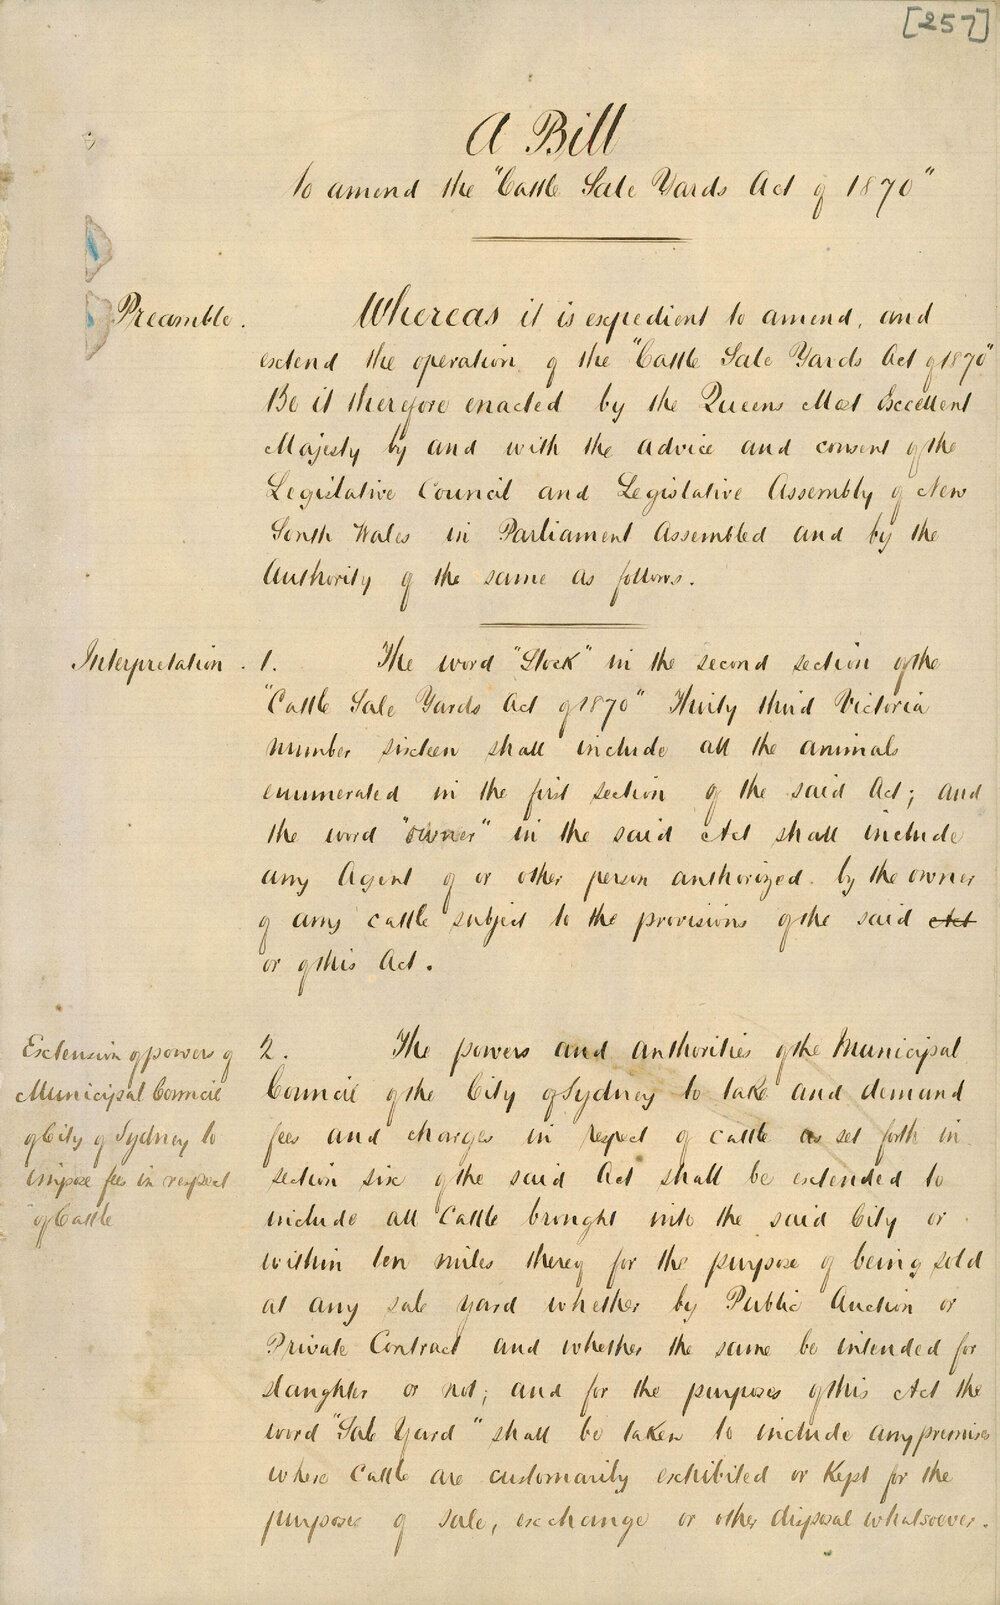 [257]
A Bill
to amend the "Cattle Sale Yards Act of 1870"
Preamble.
Whereas it is expedient to amend, and
extend the operation of the "Cattle Sale Yards Act of 1870"
Be it therefore enacted by the Queens Most Excellent
Majesty by and with the advice and consent of the
Legislative Council and Legislative Assembly of New
South Wales in Parliament Assembled and by the
Authority of the same as follows.
Interpretation.
1. The word "Stock" in the second section of the
"Cattle Sale Yards Act of 1870" Thirty third Victoria
number sixteen shall include all the animals
enumerated in the first section of the said Act; and
the word "owner" in the said Act shall include
any Agent of or other person authorized by the owner
of any cattle subject to the provisions of the said Act
or of this Act.
Extension of powers of
Municipal Council
of City of Sydney to
impose fees in respect
of Cattle
2. The powers and authorities of the Municipal
Council of the City of Sydney to take and demand
fees and charges in respect of cattle as set forth in
section six of the said Act shall be extended to
include all Cattle brought into the said City or
within ten miles thereof for the purpose of being sold
at any sale yard whether by Public Auction or
Private Contract and whether the same be intended for
slaughter or not; and for the purposes of this Act the
word "Sale Yard" shall be taken to include any premises
where Cattle are customarily exhibited or Kept for the
purpose of sale, exchange or other disposal whatsoever.